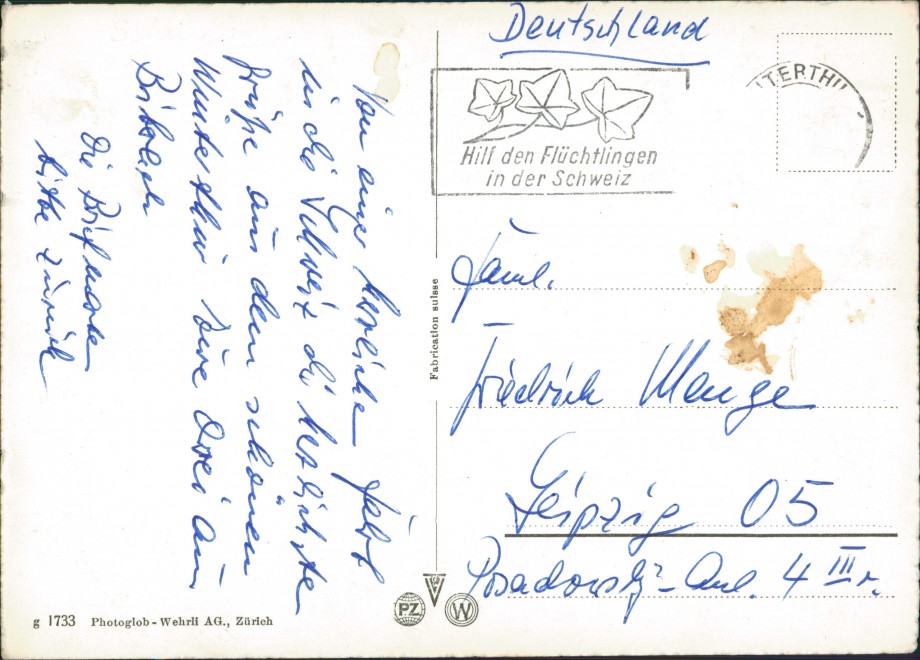 Von einer herrlichen Fahrt
in die Schweiz die herzlichste
Grüße aus dem schönen
Winterthur Eure Drei aus
Die Briefmarken
bitte zurück
Deutschland
Hilf den Flüchtlingen
in der Schweiz
TERTHU
Faml.
Friedrich Menge
Leipzig O5
Posadowsky-Anl. 4 III r.
Fabrication suisse
PZ
W
g 1733 Photoglob-Wehrli AG., Zürich